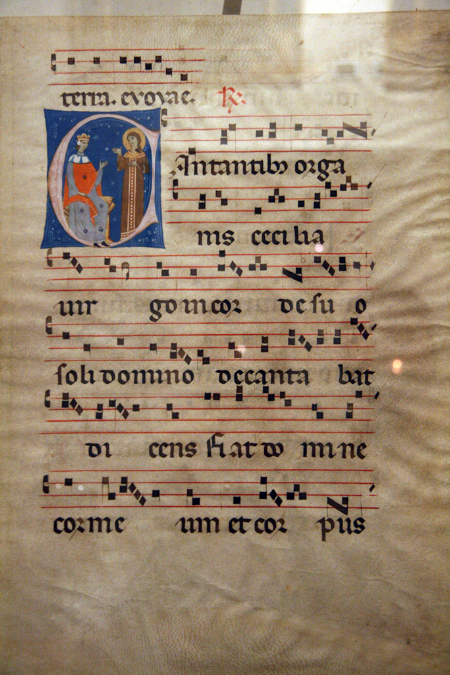 terra. evovae. R.
Cantantibus orga
nis cecilia
uir go in cor de su o
soli domino decanta bat
di cens Fi at do mi ne
cor me um et cor pus